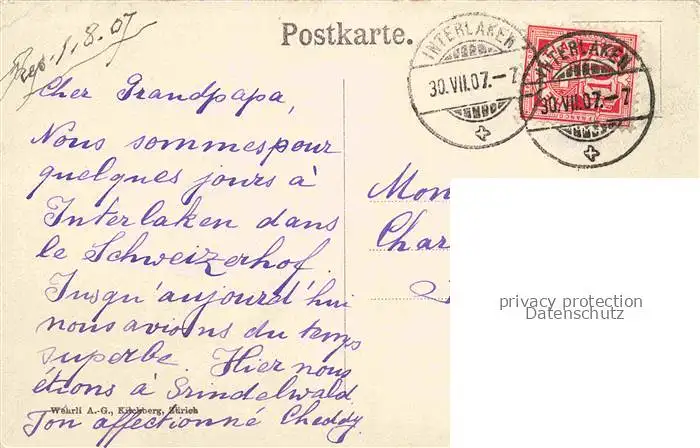 Rep. 1.8.07
Postkarte.
INTERLAKEN
30.VII.07.-7
INTERLAKEN
30.VII.07.-7
Cher Grandpapa,
Nous sommes pour
quelques jours à
Interlaken dans
le Schweizerhof.
Jusqu'aujourd'hui
nous avions du temps
superbe. Hier nous
étions à Grindelwald.
Ton affectionné Cheddy.
Wehrli A.-G., Kilchberg, Zürich
Mon
Char
privacy protection
Datenschutz